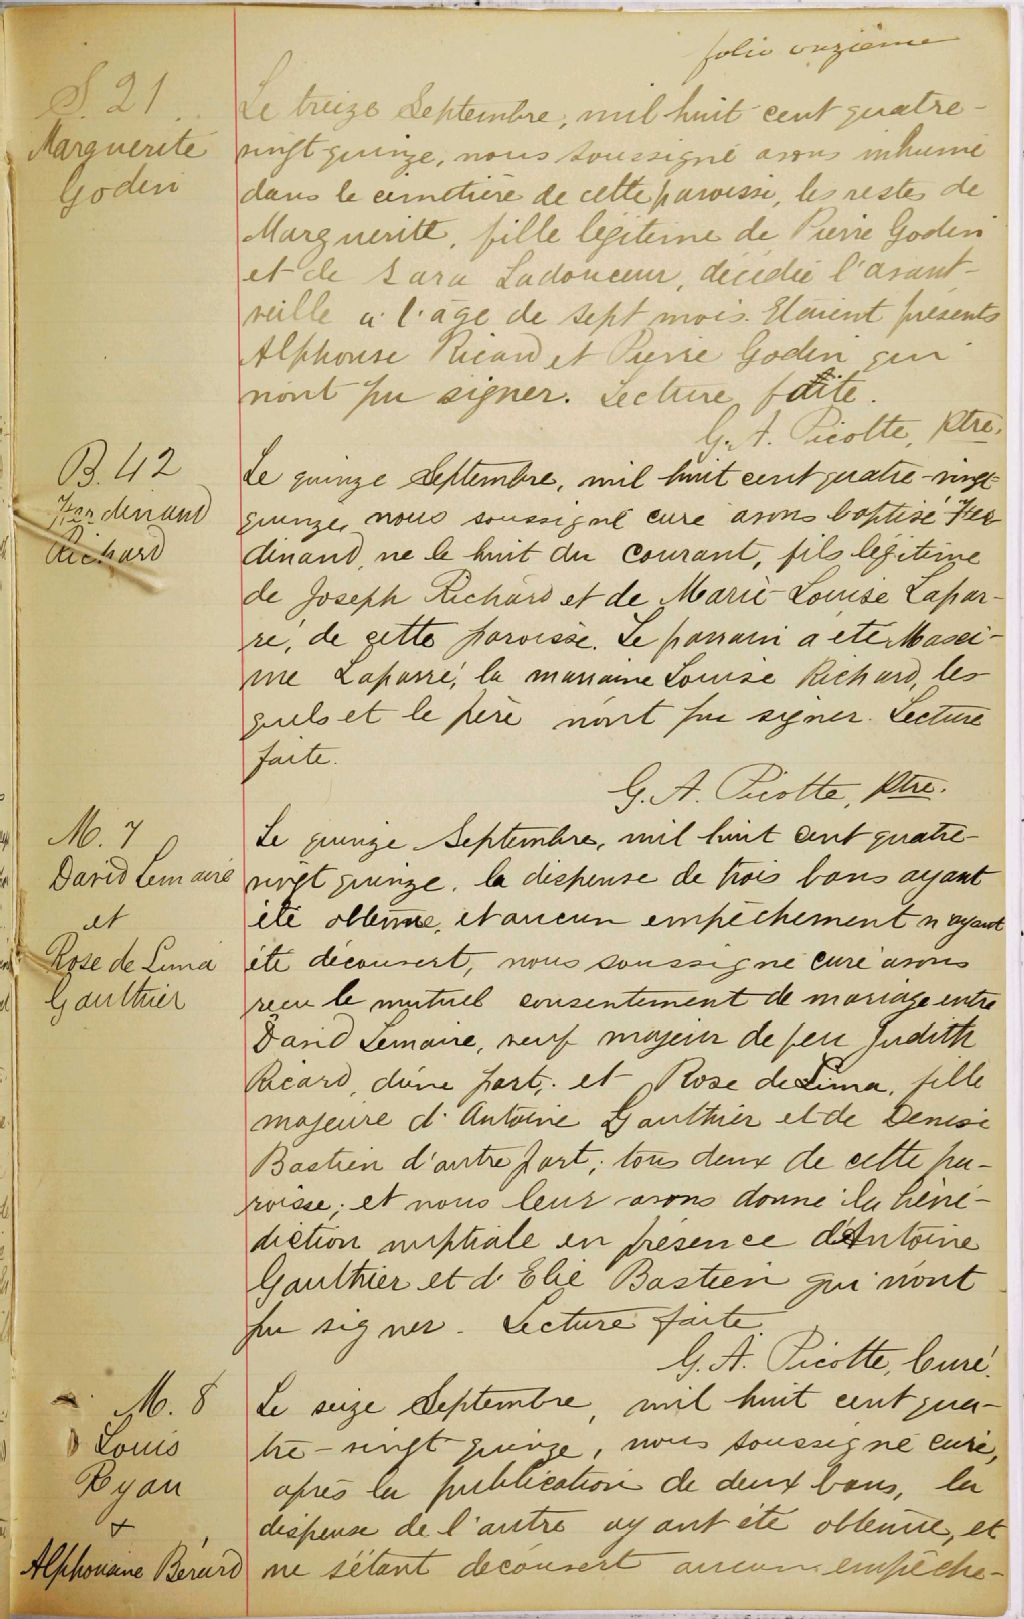 folio onzième
S. 21
Marguerite
Godin
Le treize Septembre, mil huit cent quatre-
vingt quinze, nous soussigné avons inhumé
dans le cimetière de cette paroisse, les restes de
Marguerite, fille légitime de Pierre Godin
et de Sara Ladouceur, décédée l'avant-
veille à l'âge de sept mois. Etaient présents
Alphonse Ricard et Pierre Godin qui
n'ont pu signer. Lecture faite.
G. A. Picotte, Ptre.
B. 42
Ferdinand
Richard
Le quinze Septembre, mil huit cent quatre-vingt-
quinze, nous soussigné curé avons baptisé Fer
dinand, né le huit du courant, fils légitime
de Joseph Richard et de Marie-Louise Lapar-
ré, de cette paroisse. Le parrain a été Maxi-
me Laparré, la marraine Louise Richard, les
quels et le père n'ont pu signer. Lecture
faite.
G. A. Picotte, Ptre.
M. 7
David Lemaire
et
Rose de Lima
Gaulthier
Le quinze Septembre, mil huit cent quatre-
vingt quinze, la dispense de trois bans ayant
été obtenue, et aucun empêchement n'ayant
été découvert, nous soussigné curé avons
reçu le mutuel consentement de mariage entre
David Lemaire, veuf majeur de feu Judith
Ricard, d'une part; et Rose de Lima, fille
majeure d'Antoine Gaulthier et de Denise
Bastien d'autre part; tous deux de cette pa-
roisse; et nous leur avons donné la béné-
diction nuptiale en présence d'Antoine
Gaulthier et d'Elie Bastien qui n'ont
pu signer. Lecture faite.
G. A. Picotte, Curé.
M. 8
Louis
Ryan
+
Alphonsine Bérard
Le seize Septembre, mil huit cent qua-
tre-vingt quinze, nous soussigné curé,
après la publication de deux bans, la
dispense de l'autre ayant été obtenue, et
ne s'étant découvert aucun empêche-